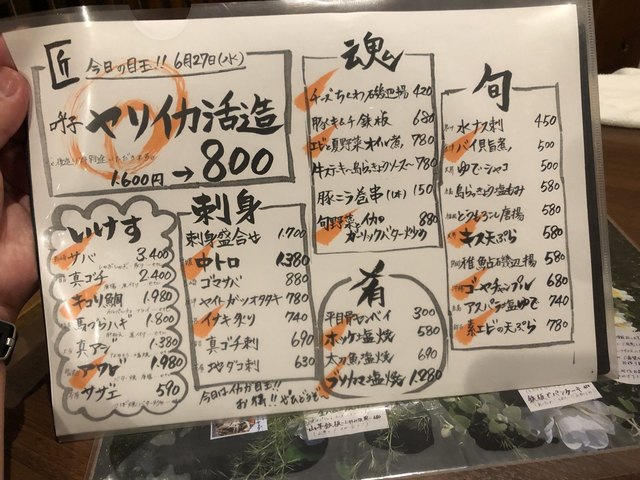 匠
今日の目玉!! 6月27日(水)
呼子
ヤリイカ活造
1.600円→800
いけす
サバ 3.400
真ゴチ 2.400
キコリ鯛 1.980
馬づらハギ 1.800
真アジ 1.380
アワビ 1.980
サザエ 590
刺身
刺身盛合せ 1.700
中トロ 1.380
ゴマサバ 880
ヤイトガツオタタキ 780
イサキ炙り 740
真ゴチ刺 690
地ダコ刺 630
今日はイカが目玉!!
魂
チーズちくわ磯辺揚 420
豚キムチ鉄板 680
エビと夏野菜オイル煮 780
牛ステーキ〜島らっきょソース〜 780
豚ニラ巻串(1本) 150
旬野菜とイカの
ガーリックバター炒め 880
肴
平目骨センベイ 300
ホッケ塩焼 580
太刀魚塩焼 690
ブリカマ塩焼 1.280
旬
水ナス刺 450
バイ貝旨煮 500
ゆでシャコ 500
島らっきょ塩もみ 580
とうもろこし唐揚 580
キス天ぷら 580
稚鮎磯辺揚 580
ゴーヤチャンプル 680
アスパラ塩ゆで 740
素エビの天ぷら 780